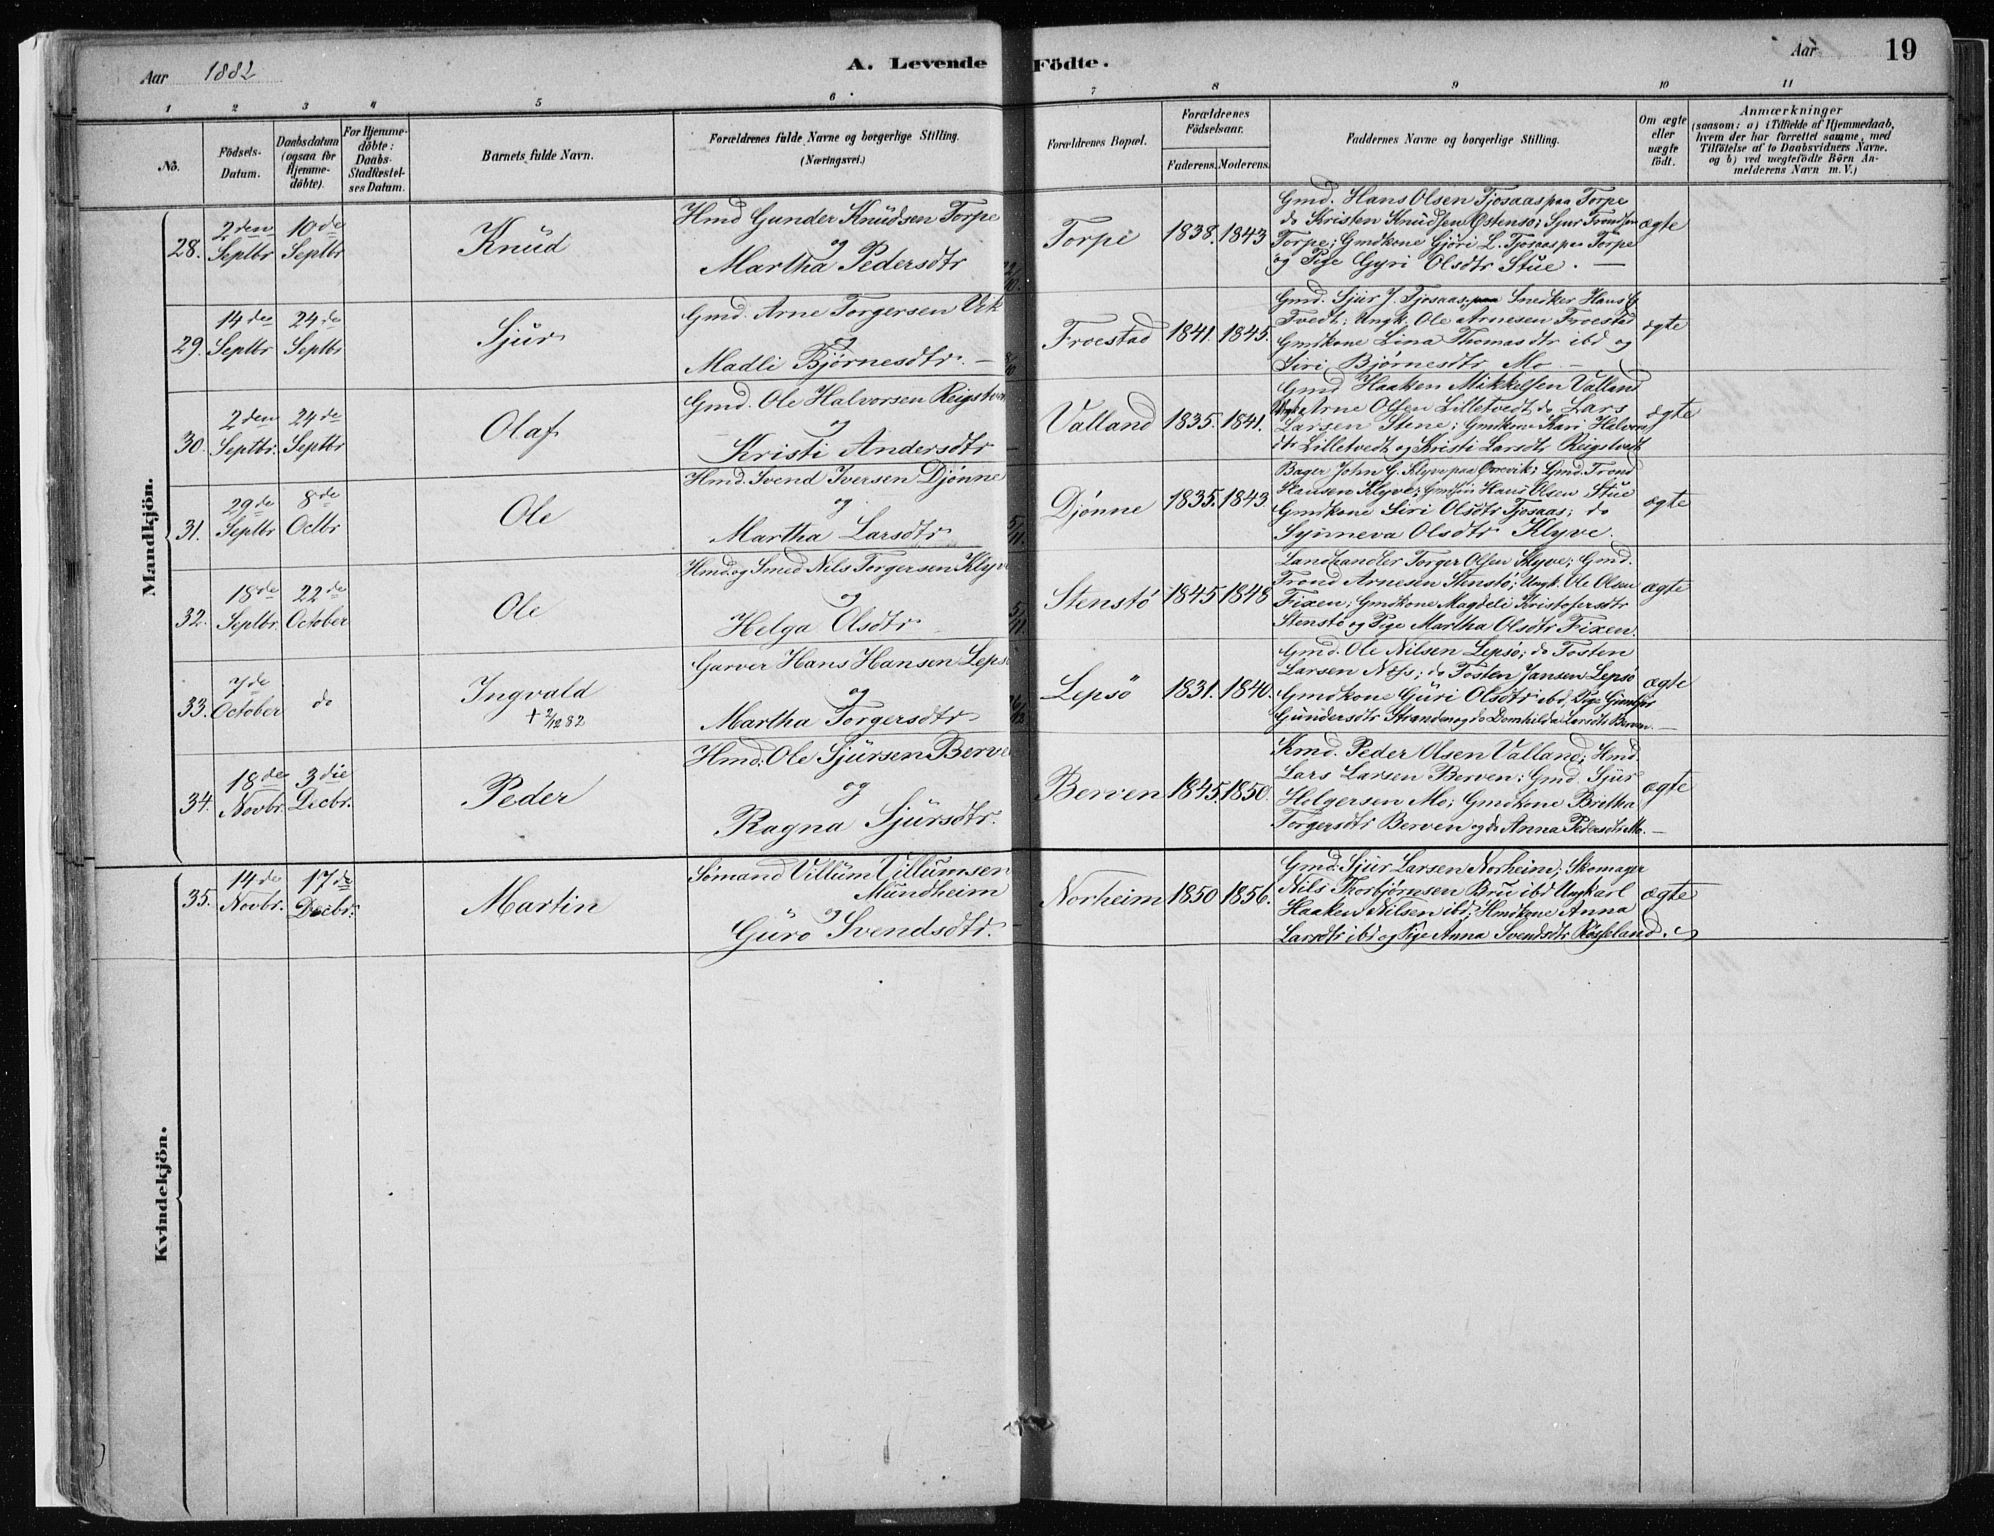 Aar 1882
A. Levende Födte.
Aar
19
1 2 3 4 5 6 7 8 9 10 11
No.
Födsels-
Datum.
Daabsdatum
(ogsaa for
Hjemme-
döbte).
For Hjemme-
döbte:
Daabs-
Stadfæstel-
ses Datum.
Barnets fulde Navn.
Forældrenes fulde Navne og borgerlige Stilling.
(Næringsvei.)
Forældrenes Bopæl.
Forældrenes
Födselsaar.
Faderens. Moderens.
Faddernes Navne og borgerlige Stilling.
Om ægte
eller
uægte
födt.
Anmærkninger
(saasom: a) i Tilfælde af Hjemmedaab,
hvem der har forrettet samme, med
Tilföielse af to Daabsvidners Navne,
og b) ved uægtefödte Börn An-
melderens Navn m. V.)
Mandkjön.
28.
2den
Septbr
10de
Septbr
Knud
Hmd Gunder Knudsen Torpe
og
Martha Pedersdtr
Torpe
1838. 1843
Gmd. Hans Olsen Tjosaas paa Torpe
do Kristen Knudsen Østensø; Sjur Trondsen
Torpe; Gmdkone Gjøri L. Tjosaas paa Torpe
og Pige Gyri Olsdtr Stue. —
ægte
29.
14de
Septbr
24de
Septbr
Sjur
Gmd. Arne Torgersen Vik
og
Madli Bjørnesdtr. —
Froestad
1841. 1845.
Gmd. Sjur J. Tjosaas; Snedker Hans G
Tvedt; Ungk. Ole Arnesen Froestad
Gmdkone Lina Thomasdtr ibd og
Siri Bjørnesdtr Mo —
ægte
30.
2den
Septbr.
24de
Septbr
Olaf
Gmd. Ole Halvorsen Reigstved
og
Kristi Andersdtr
Valland
1835. 1841.
Gmd Haaken Mikkelsen Valland
Ungk. Arne Olsen Lilletvedt, do Lars
Larsen Stene; Gmdkone Kari Halvors
dtr Lilletvedt og Kristi Larsdtr Reigstvedt
ægte
31.
29de
Septbr
8de
Octbr
Ole
Hmd. Svend Iversen Djønne
og
Martha Larsdtr
5/11.
Djønne
1835. 1843
Bager John G. Klyve paa Orrevik; Gmd. Trond
Hansen Klyve; Gmdsøn Hans Olsen Stue
Gmdkone Siri Olsdtr Tjosaas; do
Synneva Olsdtr Klyve.
ægte
32.
18de
Septbr.
22de
October
Ole
Hmd. og Smed Nils Torgersen Klyve
og
Helga Olsdtr
5/11.
Stenstø
1845 1848
Landhandler Torger Olsen Klyve; Gmd.
Trond Arnesen Stenstø; Ungk. Ole Olsen
Fixen; Gmdkone Magdeli Kristofersdtr
Stenstø og Pige Martha Olsdtr Fixen.
ægte
33.
7de
October
do
Ingvald
+ 2/12 82
Garver Hans Hansen Lepsø
og
Martha Torgersdtr
Lepsö
1831. 1840.
Gmd. Ole Nilsen Lepsø; do Tosten
Larsen Næs; do Tosten Jansen Lepsø
Gmdkone Guri Olsdtr ibd, Pige
Gundersdtr Stranden og do Domhilda Larsdtr Berven. —
ægte
34.
18de
Novbr.
3die
Decbr.
Peder
Hmd. Ole Sjursen Berve
og
Ragna Sjursdtr.
Berven
1845. 1850.
Kmd. Peder Olsen Valland; Hmd.
Lars Larsen Berven; Gmd. Sjur
Holgersen Mo; Gmdkone Britha
Torgersdtr Berven og do Anna Pedersdtr Mo. —
ægte
Kvindekjön.
35.
14de
Novbr.
17de
Decbr.
Martin
Sømand Villum Villumsen
Mundheim
og
Guro Svendsdtr.
Norheim
1850 1856.
Gmd. Sjur Larsen Norheim; Skomager
Nils Thorbjørnsen Bru ibd Ungkarl
Haaken Nilsen ibd; Hmdkone Anna
Larsdtr ibd og Pige Anna Svendsdtr Røsseland.
ægte